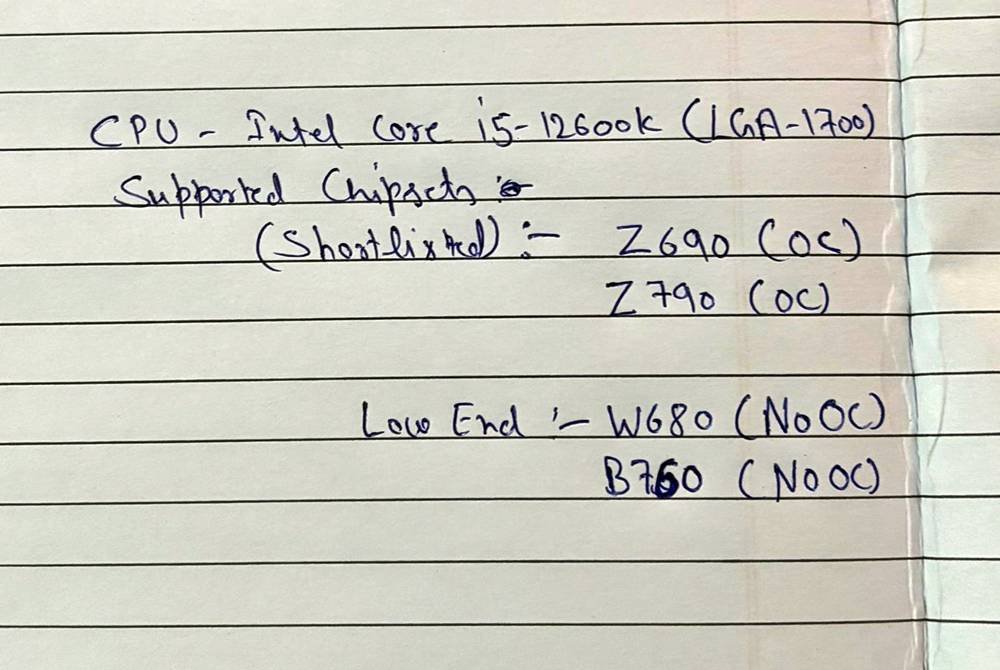 CPU - Intel Core i5-12600k (LGA-1700)
Supported Chipsets :-
(Shortlisted) :- Z690 (OC)
Z790 (OC)
Low End :- W680 (No OC)
B760 (No OC)